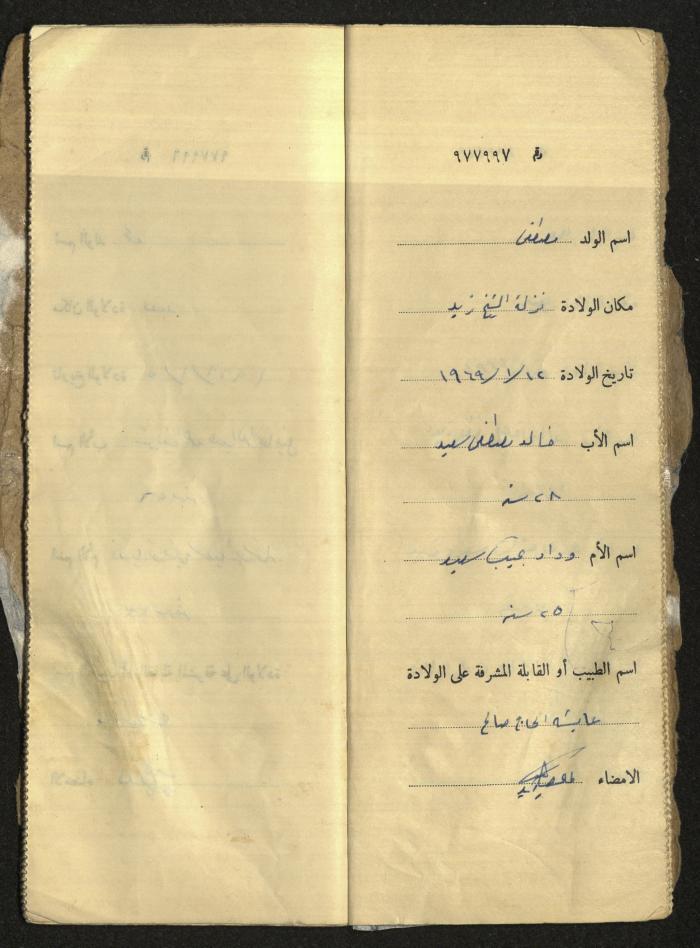 رقم ٩٧٧٩٩٧
اسم الولد مصطفى
مكان الولادة نزلة الشيخ زيد
تاريخ الولادة ١٢/١/١٩٦٩
اسم الأب خالد مصطفى سعيد
٢٨ سنة
اسم الأم وداد نجيب سعيد
٢٥ سنة
اسم الطبيب أو القابلة المشرفة على الولادة
عايشه الحاج صالح
الامضاء